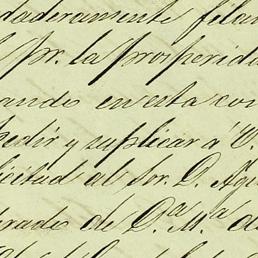 daderamente filan
pr. la prosperida
ando en esta con
pedir y suplicar á V.
licitud al Sor. D. Agu
rado de Da. Ma. de